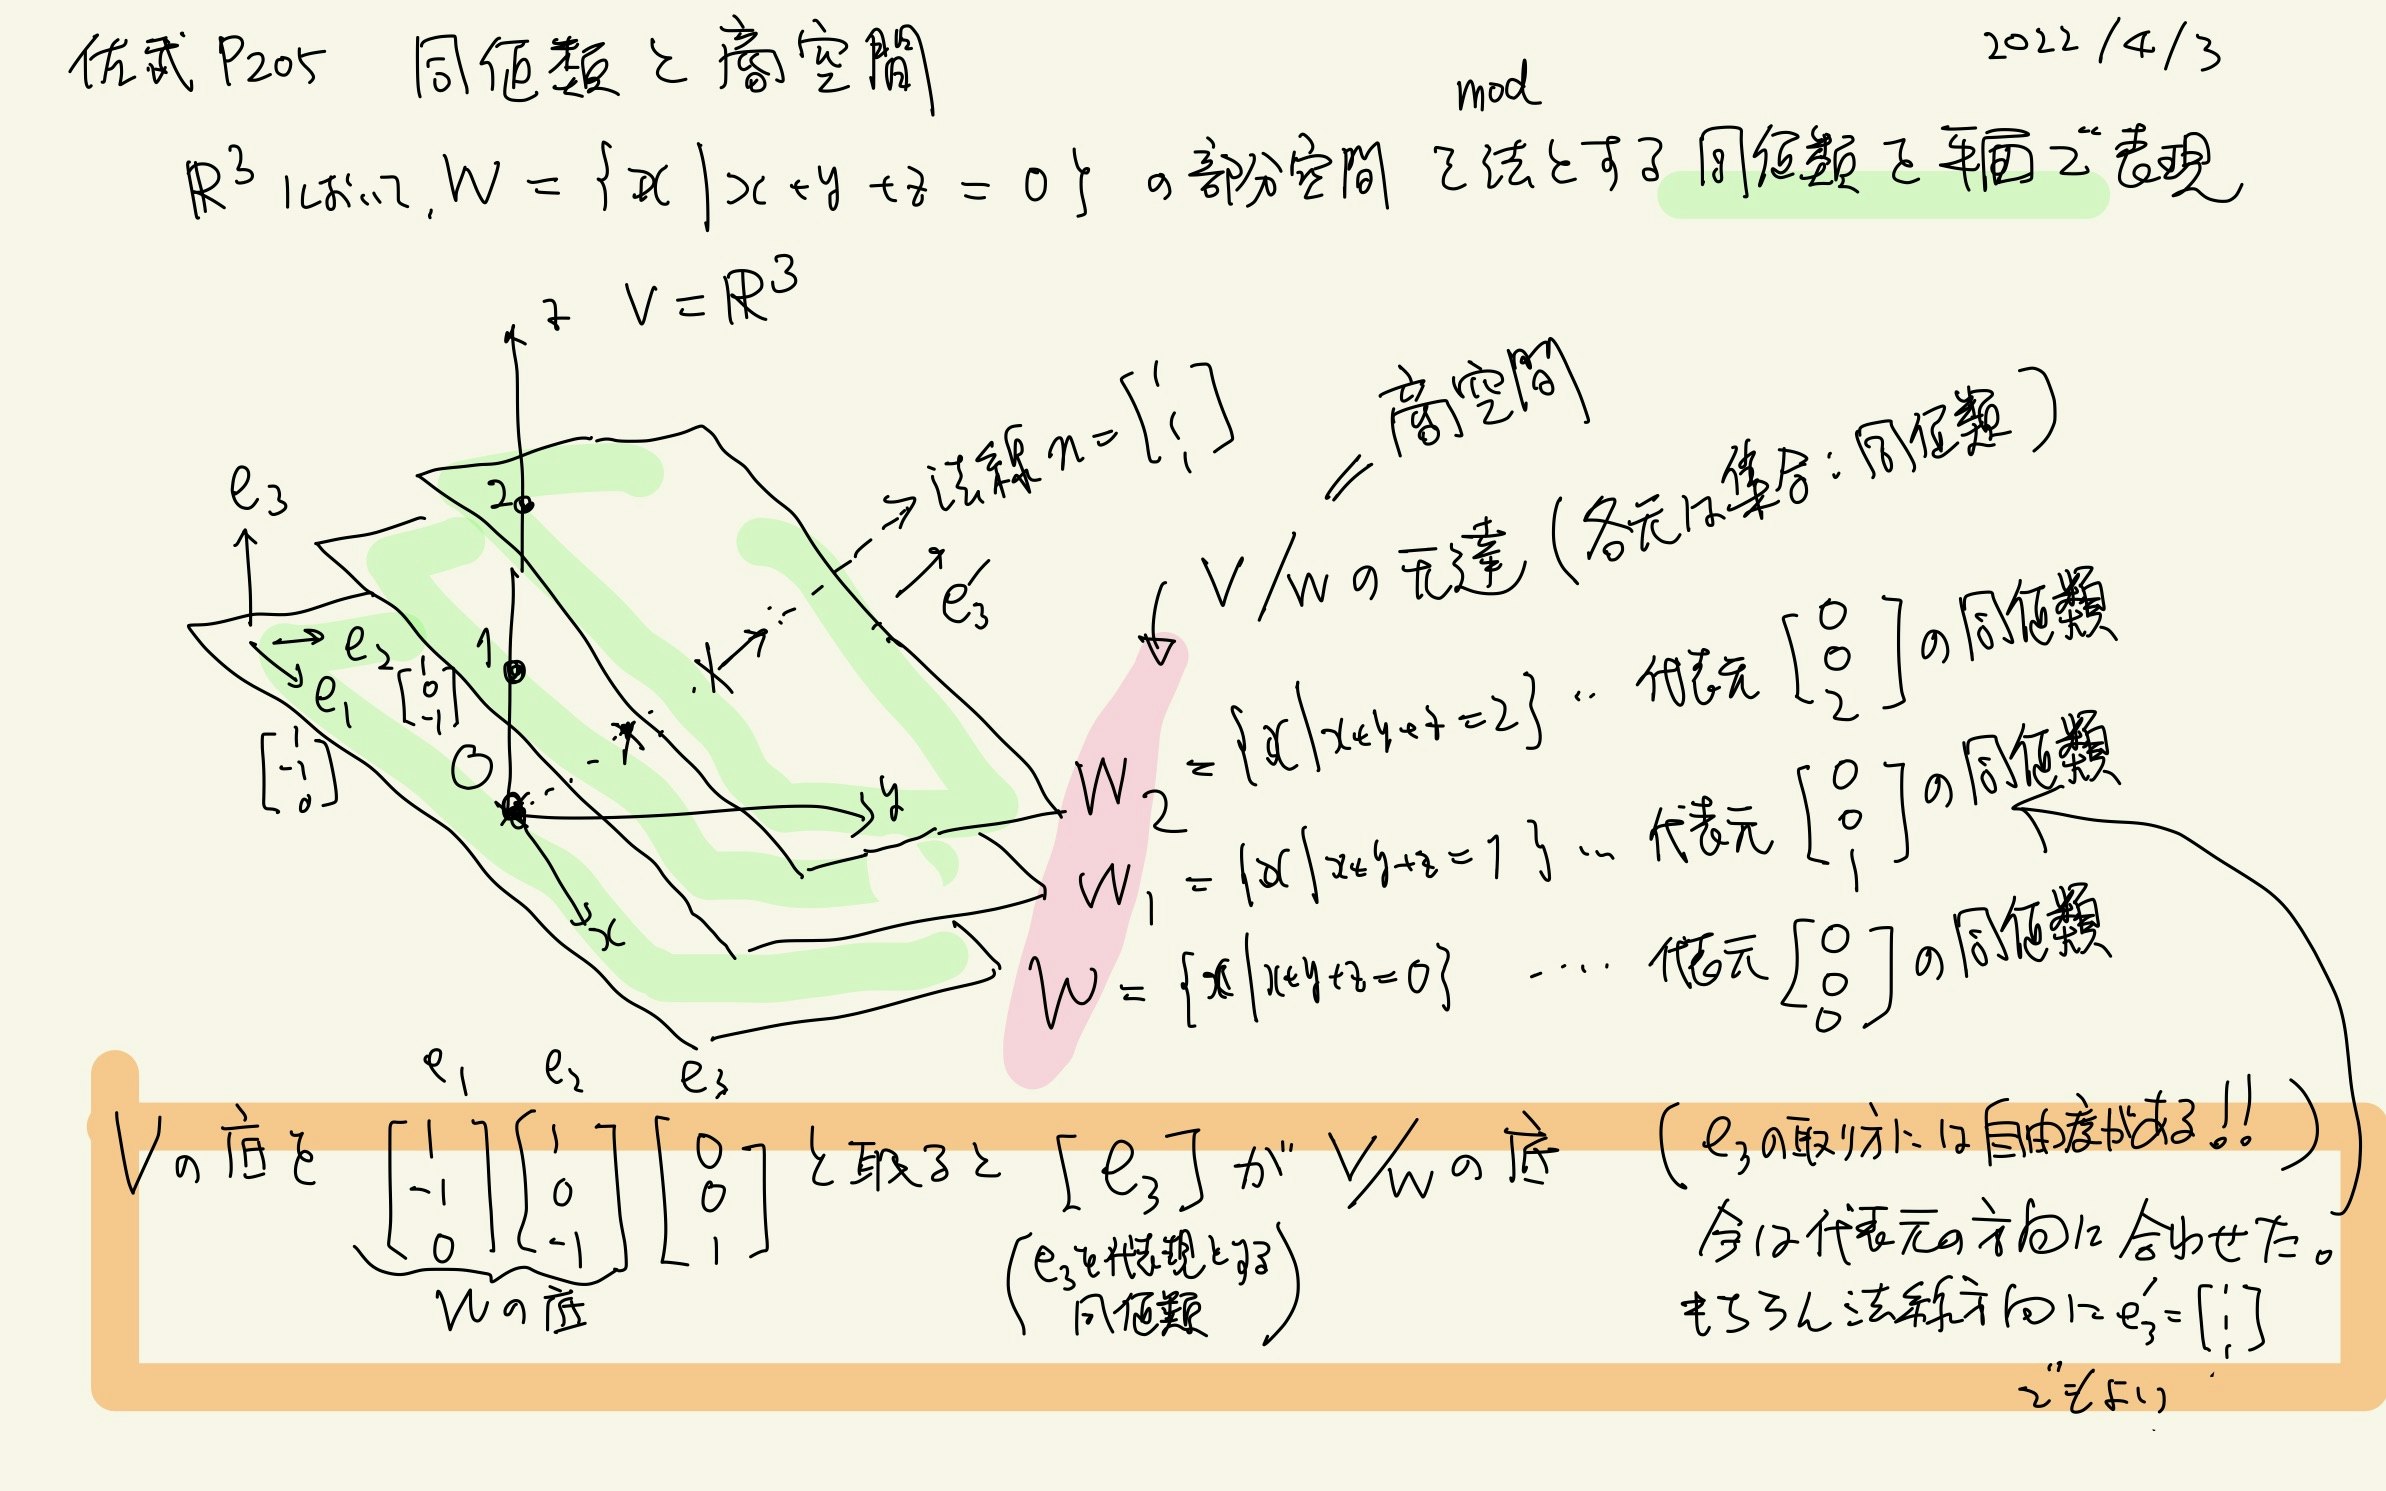 佐武 P205 同値類と商空間
2022/4/3
mod
ℝ³において, W = {x | x+y+z = 0} の部分空間を法とする同値類を平面で表現
z V = ℝ³
法線 n = [1 1 1]
= 商空間
V/W の元達 (各元は集合:同値類)
e₃
2
e₃′
e₂
e₁
[1 0 -1]
[1 -1 0]
1
O
y
x
W₂ = {x | x+y+z = 2} ‥ 代表元 [0 0 2] の同値類
W₁ = {x | x+y+z = 1} … 代表元 [0 0 1] の同値類
W = {x | x+y+z = 0} …‥ 代表元 [0 0 0] の同値類
e₁ e₂ e₃
Vの底を [1 -1 0] [1 0 -1] [0 0 1] と取ると [e₃] が V/W の底 (e₃の取り方には自由度がある!!)
Wの底
(e₃を代表現とする
同値類)
今は代表元の方向に合わせた。
もちろん法線方向に e₃′ = [1 1 1]
でもよい